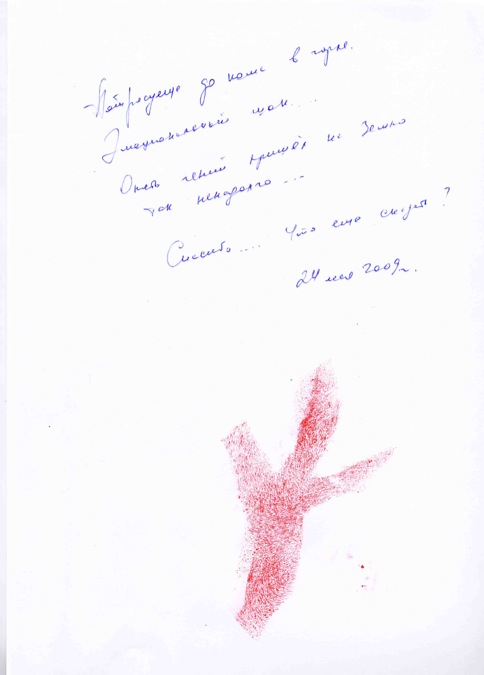 Потресующе до кома в горле.
Эмоциональный шок....
Опять гений пришёл на Землю
так ненадолго...
Спасибо.... Что еще сказать?
24 мая 2009г.